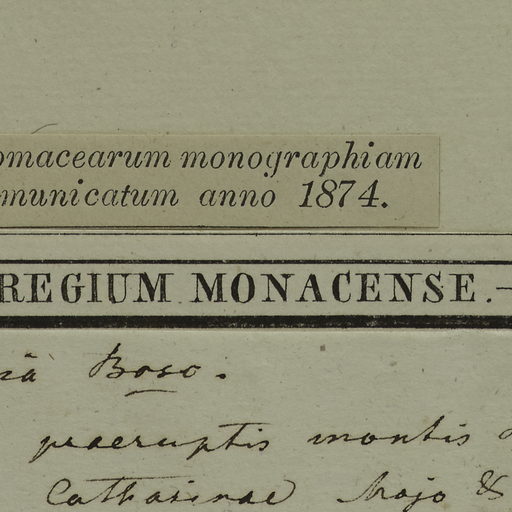 omacearum monographiam
municatum anno 1874.
REGIUM MONACENSE.—
Boso.
praeruptis montis
Catharinae Majo &